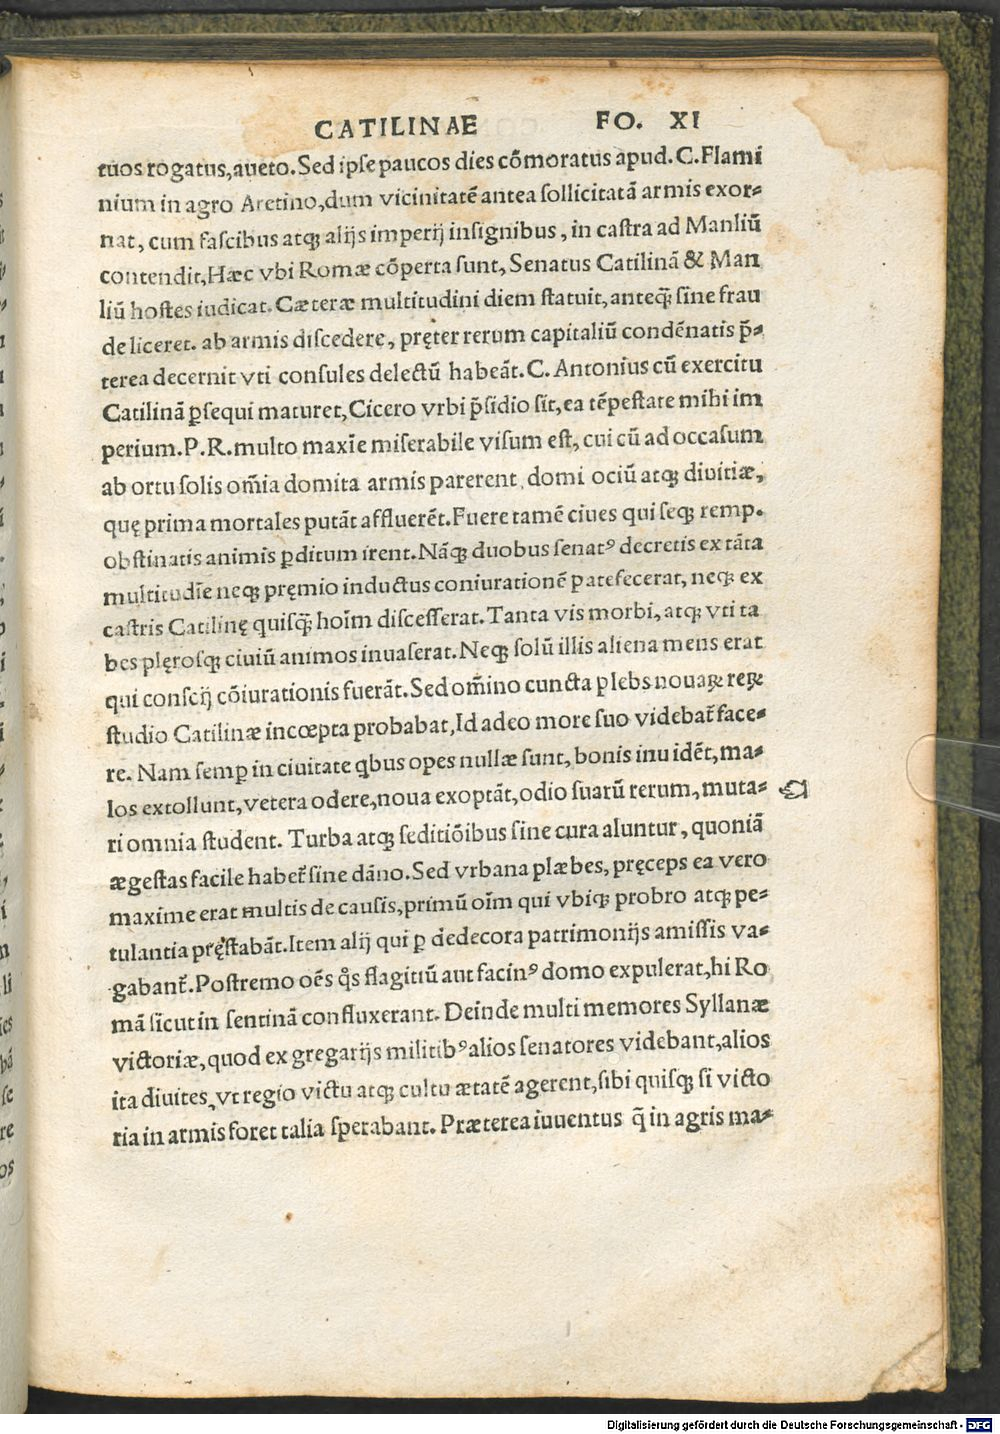 CATILINAE FO. XI
tuos rogatus, aueto. Sed ipſe paucos dies cõmoratus apud. C. Flami
nium in agro Aretino, dum vicinitatẽ antea ſollicitatã armis exor-
nat, cum faſcibus atqꝫ alijs imperij inſignibus, in caſtra ad Manliũ
contendit, Hæc vbi Romæ cõperta ſunt, Senatus Catilinã & Man
liũ hoſtes iudicat. Cæteræ multitudini diem ſtatuit, anteqꝫ̃ ſine frau
de liceret. ab armis diſcedere, pręter rerum capitaliũ condẽnatis p̃-
terea decernit vti conſules delectũ habeãt. C. Antonius cũ exercitu
Catilinã ꝑſequi maturet, Cicero vrbi p̃ſidio ſit, ea tẽpeſtate mihi im
perium. P. R. multo maxĩe miſerabile viſum eſt, cui cũ ad occaſum
ab ortu ſolis om̃ia domita armis parerent, domi ociũ atqꝫ diuitiæ,
quę prima mortales putãt affluerẽt. Fuere tamẽ ciues qui ſeqꝫ remp.
obſtinatis animis ꝑditum irent. Nãqꝫ duobus ſenatꝰ decretis ex tãta
multitudĩe neqꝫ pręmio inductus coniurationẽ patefecerat, neqꝫ ex
caſtris Catilinę quiſqꝫ̃ hoĩm diſceſſerat. Tanta vis morbi, atqꝫ vti ta
bes plęroſqꝫ ciuiũ animos inuaſerat. Neqꝫ ſolũ illis aliena mens erat
qui conſcij cõiurationis fuerãt. Sed om̃ino cuncta plebs nouaꝝ reꝝ
ſtudio Catilinæ incœpta probabat, Id adeo more ſuo videbat᷑ face-
re. Nam ſemꝑ in ciuitate qbus opes nullæ ſunt, bonis inuidẽt, ma-
los extollunt, vetera odere, noua exoptãt, odio ſuarũ rerum, muta-
ri omnia ſtudent. Turba atqꝫ ſeditiõibus ſine cura aluntur, quoniã
ægeſtas facile habet᷑ ſine dãno. Sed vrbana plæbes, pręceps ea vero
maxime erat multis de cauſis, primũ oĩm qui vbiqꝫ probro atqꝫ pe-
tulantia pręſtabãt. Item alij qui ꝑ dedecora patrimonijs amiſſis va-
gabant᷑. Poſtremo oẽs q̊s flagitiũ aut facinꝰ domo expulerat, hi Ro
mã ſicut in ſentinã confluxerant. Deinde multi memores Syllanæ
victoriæ, quod ex gregarijs militibꝰ alios ſenatores videbant, alios
ita diuites, vt regio victu atqꝫ cultu ætatẽ agerent, ſibi quiſqꝫ ſi victo
ria in armis foret talia ſperabant. Præterea iuuentus q̃ in agris ma-
Digitalisierung gefördert durch die Deutsche Forschungsgemeinschaft - DFG